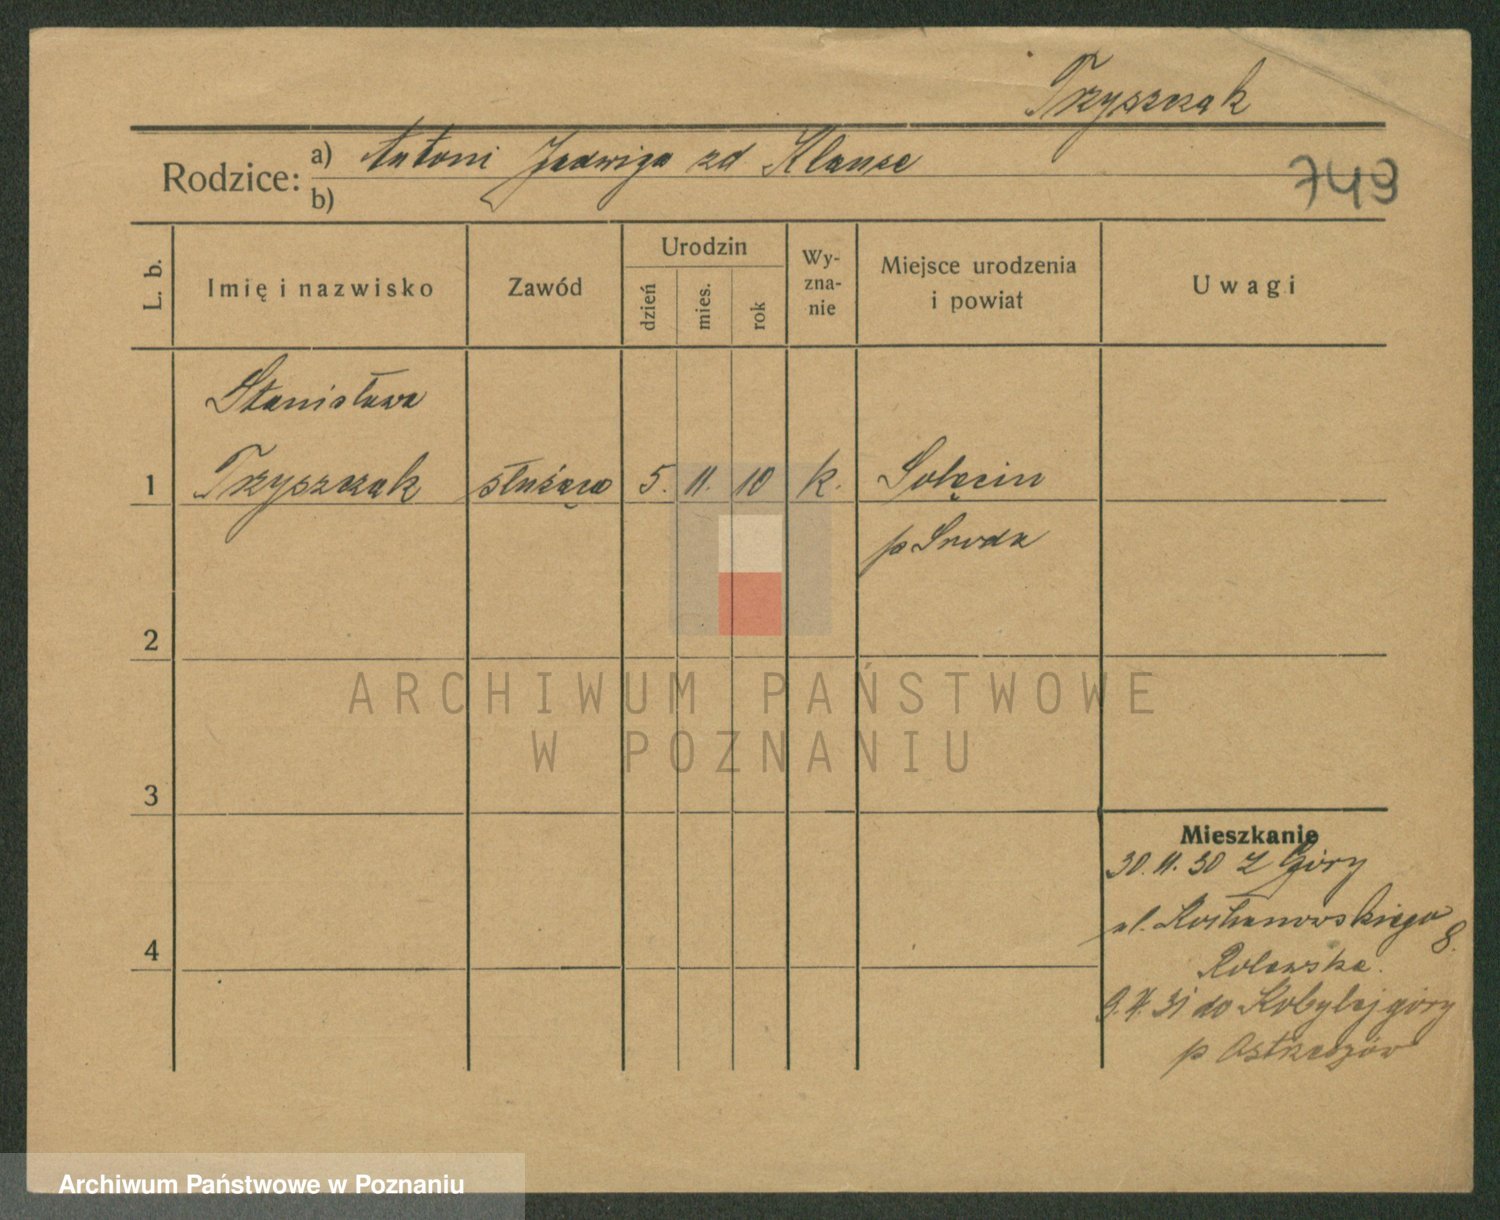 Trzyszczak
Rodzice: a) Antoni Jadwiga zd Klause
b)
749
L. b. Imię i nazwisko Zawód Urodzin dzień mies. rok Wy-zna-nie Miejsce urodzenia i powiat Uwagi
Stanisława
1 Trzyszczak służąca 5. 11. 10 k. Solęcin
p Sroda
2
ARCHIWUM PAŃSTWOWE
W POZNANIU
3
Mieszkanie
30.11.30 z Góry
ul. 8.
4
Rolewska.
31 do Kobylejgóry
p Ostrzeszów
Archiwum Państwowe w Poznaniu